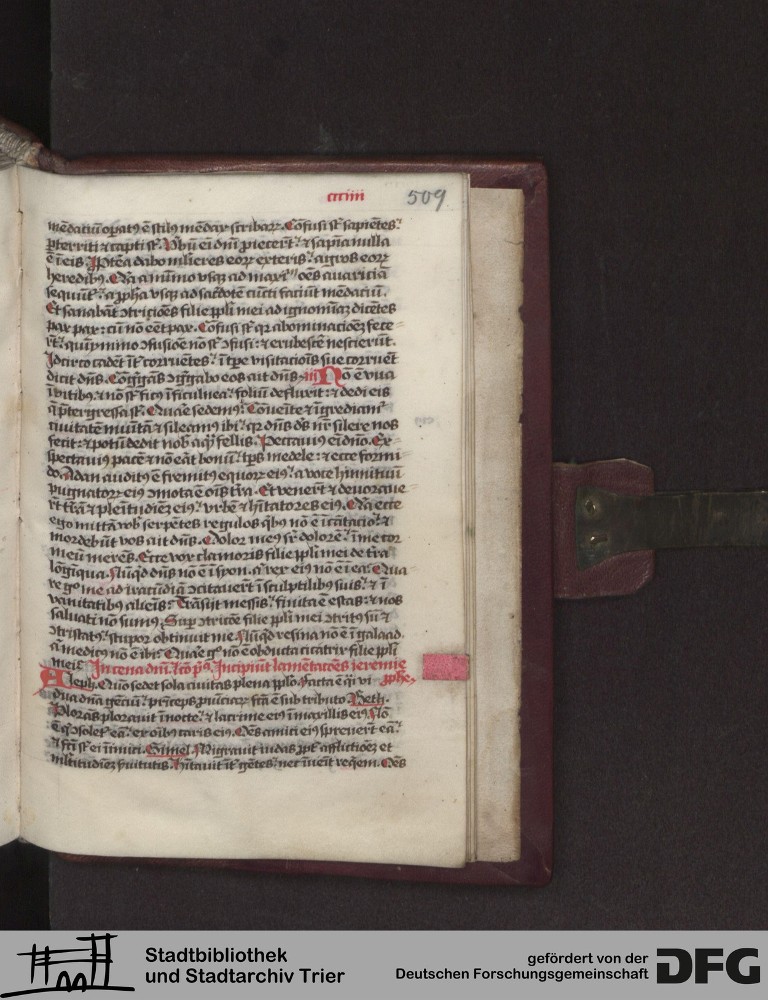 ccciiii 509
mēdaciū opatꝰ ē stilꝰ mēdax scribaꝝ. Cōfusi sť sapiētes.
ꝑterriti ⁊ capti sť. Ꝟbū eī dn̄i ꝓiecerūt. ⁊ sapīa nulla
ē ī eis. Ꝓptēa dabo mlieres eoꝝ exteris. agros eoꝝ
heredibꝫ. Q̄a a mīmo vsqꝫ ad maxīū oēs auariciā
sequūť. a ꝓpha vsqꝫ ad sac̄dotē cūcti faciūt mēdaciū.
Et sanabāt ↄtricōeś filie ppl̄i mei ad ignomiā dicētes
pax pax: cū nō eēt pax. Cōfusi sť qꝛ abominacōeź fece
rť. quīpmīmo ↄfusiōe nō sť ↄfusi: ⁊ erubesc̄e nescierūt.
Idcirco cadēt īť corruētes. ī tꝑe visitacōīs sue corruēt
dicit dn̄s. Cōg̃gās ↄg̃gabo eos ait dn̄s. Nō ē vua
ī vitibꝫ. ⁊ nō sť ficꝰ ī ficulnea. foliū defluxit: ⁊ dedi eis
q̄ p̄tergressa sť. Quar̄ sedemꝰ. Cōueīte ⁊ īgrediamᷣ
ciuitatē munitā ⁊ sileamꝰ ibi. qꝛ dn̄s dꝰs nr̄ silere nos
fecit: ⁊ potū dedit nob̄ aq̄ fellis. Peccauīꝰ eī dn̄o. Ex
spectauīꝰ pacē ⁊ nō erāt bonū. tp̄s medele: ⁊ ecce formi
do. A dan auditꝰ ē fremitꝰ equoꝝ eiꝰ. a voce hīnituū
pugnatoꝝ eiꝰ ↄmota ē oīs tr̄a. Et venerťt ⁊ deuoraue
rťt tr̄ā ⁊ plenitudiēź eiꝰ. vrbē ⁊ hītatores eiꝰ. Q̄a ecce
ego mittā vob̄ serpētes regulos qͥbꝫ nō ē īcātacio. ⁊
mordebūt vos ait dn̄s. Dolor meꝰ sr̄ dolorē. ī me cor
meū merēs. Ecce vox clamoris filie ppl̄i mei de tr̄a
lōgīqua. Nūqd dn̄s nō ē ī syon. a᷑ rex eiꝰ nō ē ī ea. Qua
re gͦ me ad iracūdiā ↄcitauert ī sculptilibꝫ suis. ⁊ ī
vanitatibꝫ alieīs. Trāsijt messis. finita ē estas: ⁊ nos
saluati nō sumꝰ. Suꝑ ↄtricōe filie ppl̄i mei ↄtritꝰ sū ⁊
ↄtristatꝰ. stupor obtinuit me. Nūqd resina nō ē ī galaad.
a᷑ medicꝰ nō ē ibi. Quar̄ gͦ nō ē obducta cicatrix filie ppl̄i
mei. In cena dn̄i. lcō pͣ. Incipiūt lamētacōēs ieremie
Aleph. Quō sedet sola ciuitas plena ppl̄o. Facta ē qͣi vi ꝓphe.
dua dn̄a gēciū. prīceps ꝓuīciaꝝ fc̄a ē sub tributo. Beth.
Plorās plorauit ī nocte. ⁊ lacrime eiꝰ ī maxillis eiꝰ. Nō
ē qͥ ↄsoleť eā. ex oībꝫ caris eiꝰ. Oēs amici eiꝰ spreuerťt eā.
⁊ fc̄i sť ei īimici. Gimel. Migrauit iudas ꝓpť afflictiōeź et
mltitudiēź ẜuitutis. hītauit īť gētes. nec īueīt reqͥem. Oēs
Stadtbibliothek
und Stadtarchiv Trier
gefördert von der
Deutschen Forschungsgemeinschaft DFG